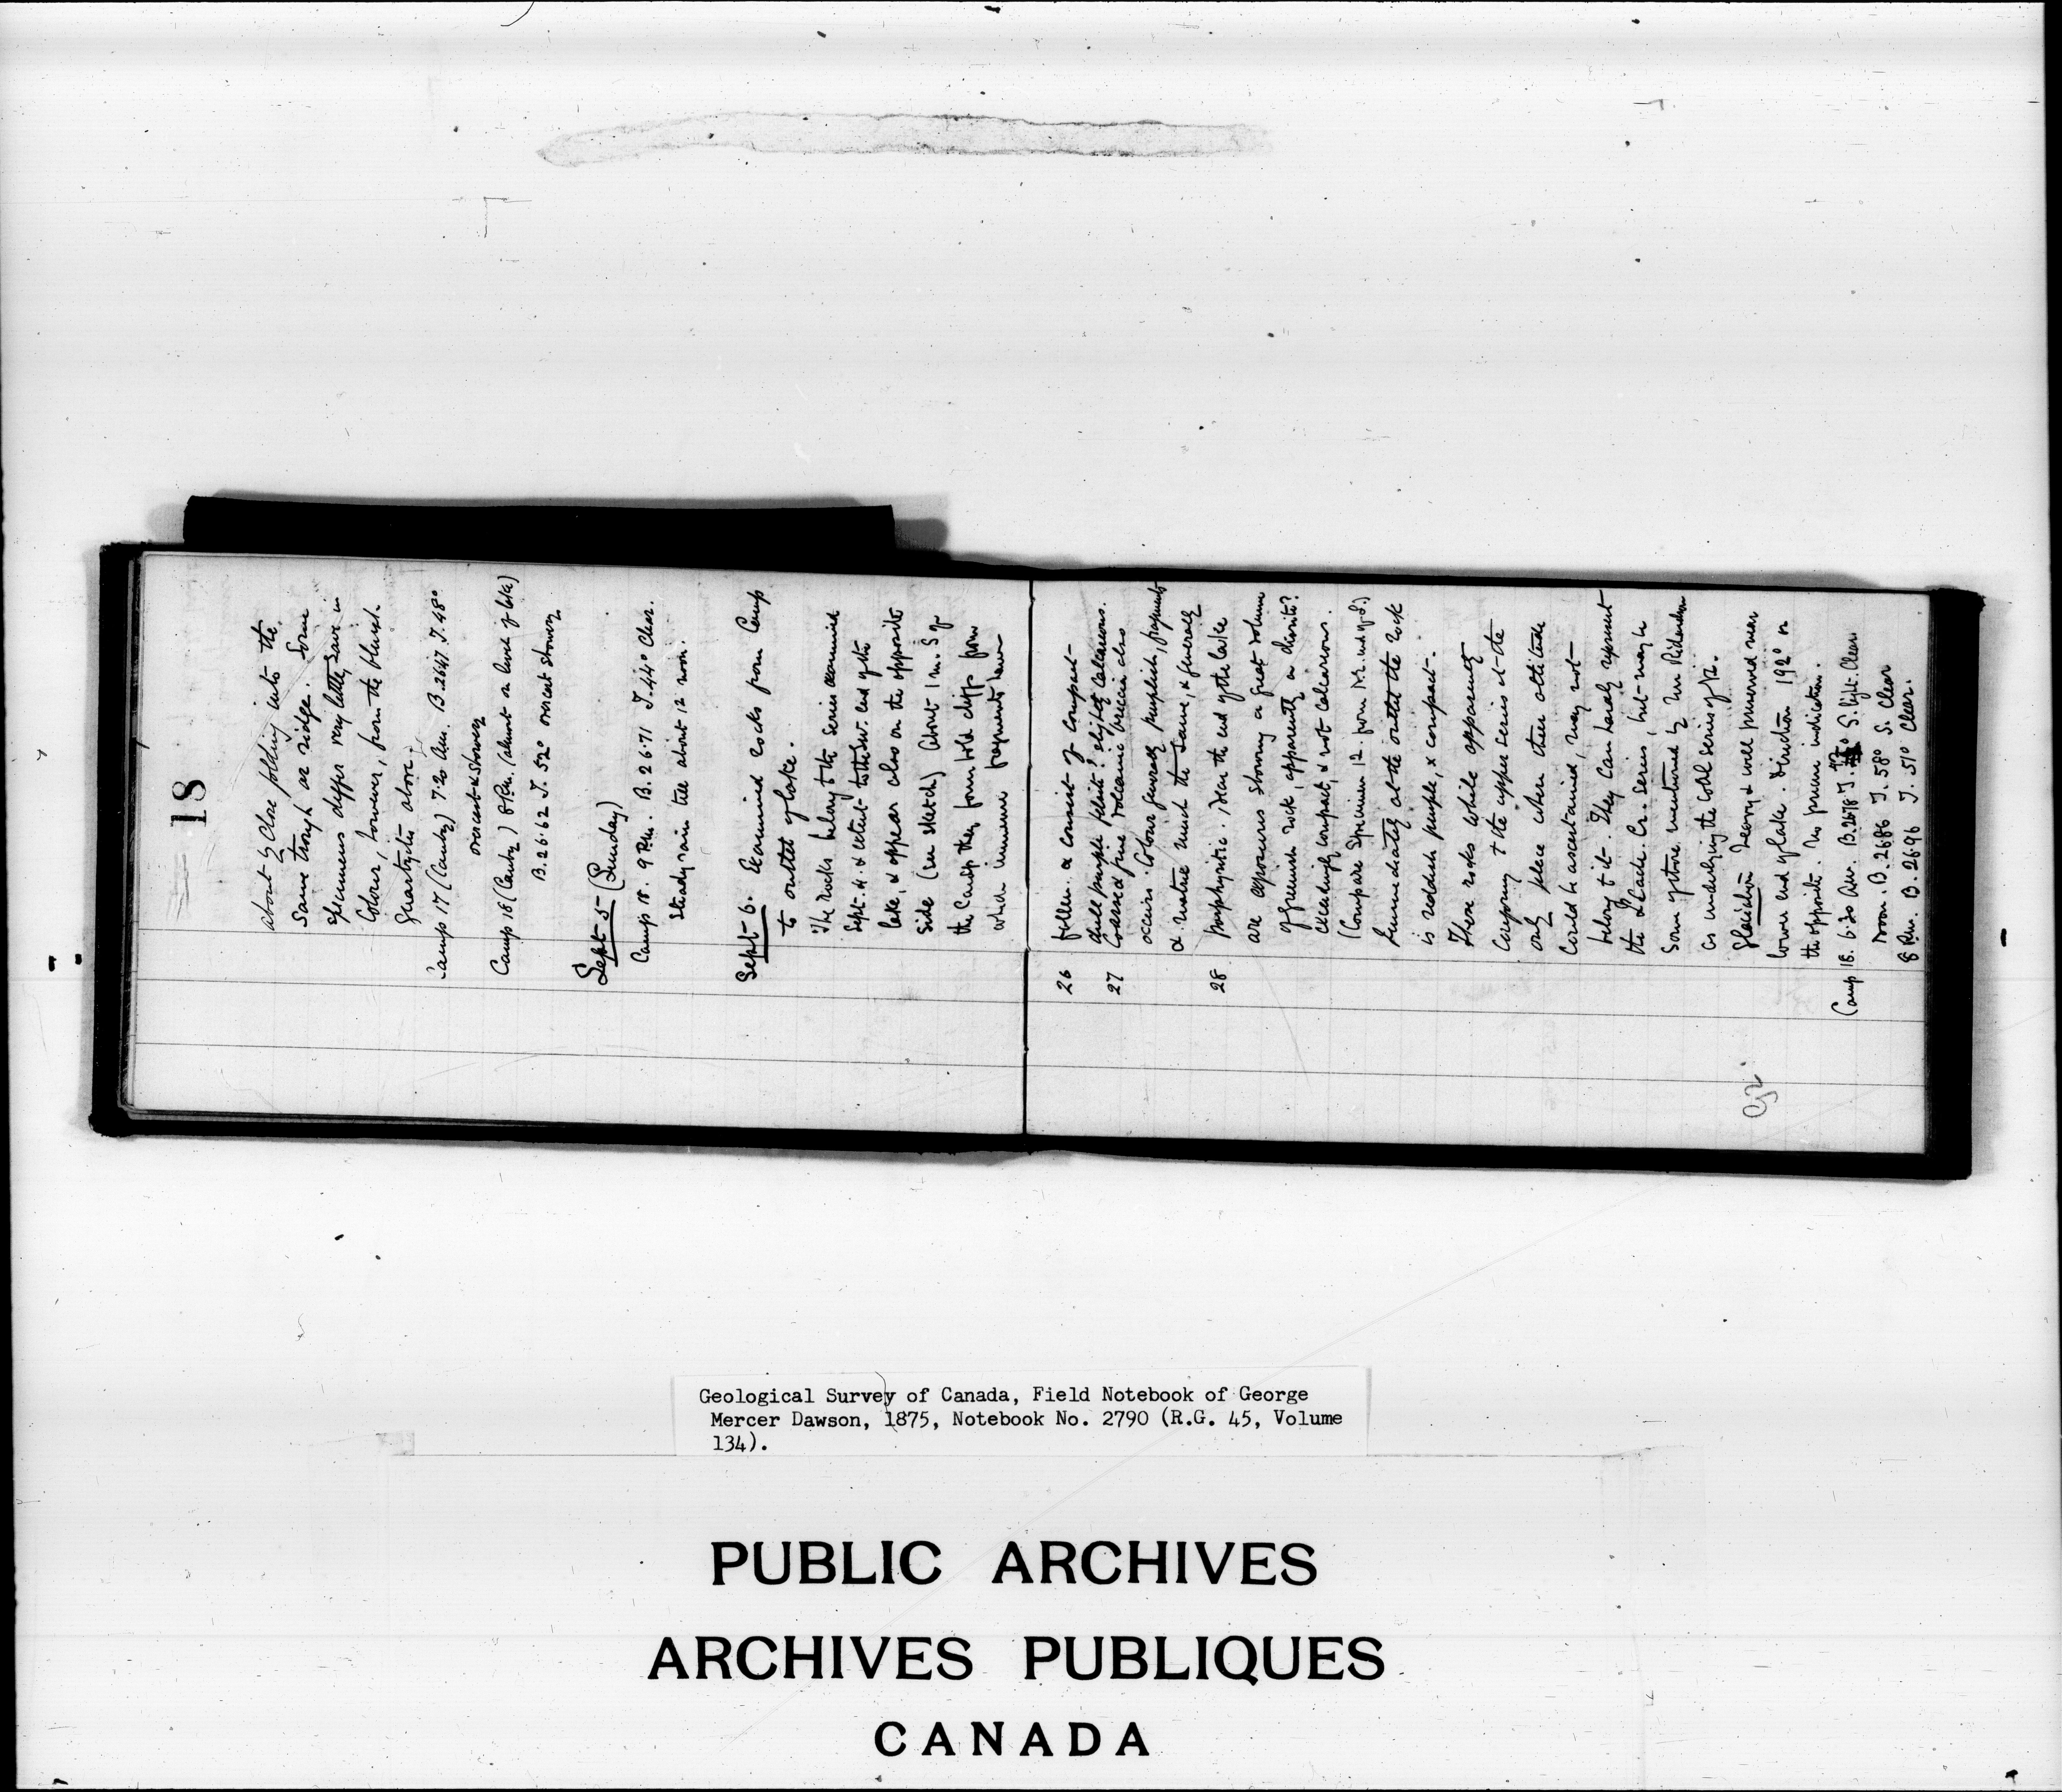 18
about by close folding into the
same trough or ridge. Some
specimens differ very little, save in
Colour, however, from the bluish
Quartzite above.
Camp 17 (Canby) 7.20 Am. B. 26.47 T. 48°
overcast & showery
Camp 18 (Canby) 8 P.m. (almost on level of lake)
B. 26.62 T. 52° overcast showery
Sept 5 (Sunday)
Camp 18. 9 P.m. B. 26.71 T. 44° Clear.
Steady rain till about 12 noon.
Sept 6. Examined rocks from Camp
to outlet of lake.
The rocks belong to the Series examined
Sept. 4. & extend to the SW. end of the
lake, & appear also on the opposite
side (see sketch) About 1 m. S of
the Camp they form bold cliffs from
which immense fragments have
26 fallen. & consist of compact
dull purple slightly calcareous.
27 Coarse & fine volcanic breccia also
occurs. Colour generally purplish, fragments
& matrix much the same, & generally
28 porphyritic. Near the end of the lake
are exposures showing a great volume
of greenish rock, apparently a diorite?
exceedingly compact, & not calcareous.
(Compare Specimen 12. from N.E. end of L.)
Immediately at the outlet the rock
is reddish purple, & compact.
These rocks while apparently
Conforming to the upper series at the
only place where their attitude
could be ascertained, may not
belong to it. They can hardly represent
the Cr. Series, but may be
Some of those mentioned by Mr Richardson
as underlying the Coal Series of V.I.
Glaciation Heavy & well preserved near
lower end of lake. Direction 192° or
the opposite. No precise indication.
Camp 18. 6.30 Am. B. 26.78 T. 42° S. light. Clear
Noon. B. 2686 T. 58° S. Clear
8 P.m. B. 2696 T. 51° Clear.
Geological Survey of Canada, Field Notebook of George
Mercer Dawson, 1875, Notebook No. 2790 (R.G. 45, Volume
134).
PUBLIC ARCHIVES
ARCHIVES PUBLIQUES
CANADA